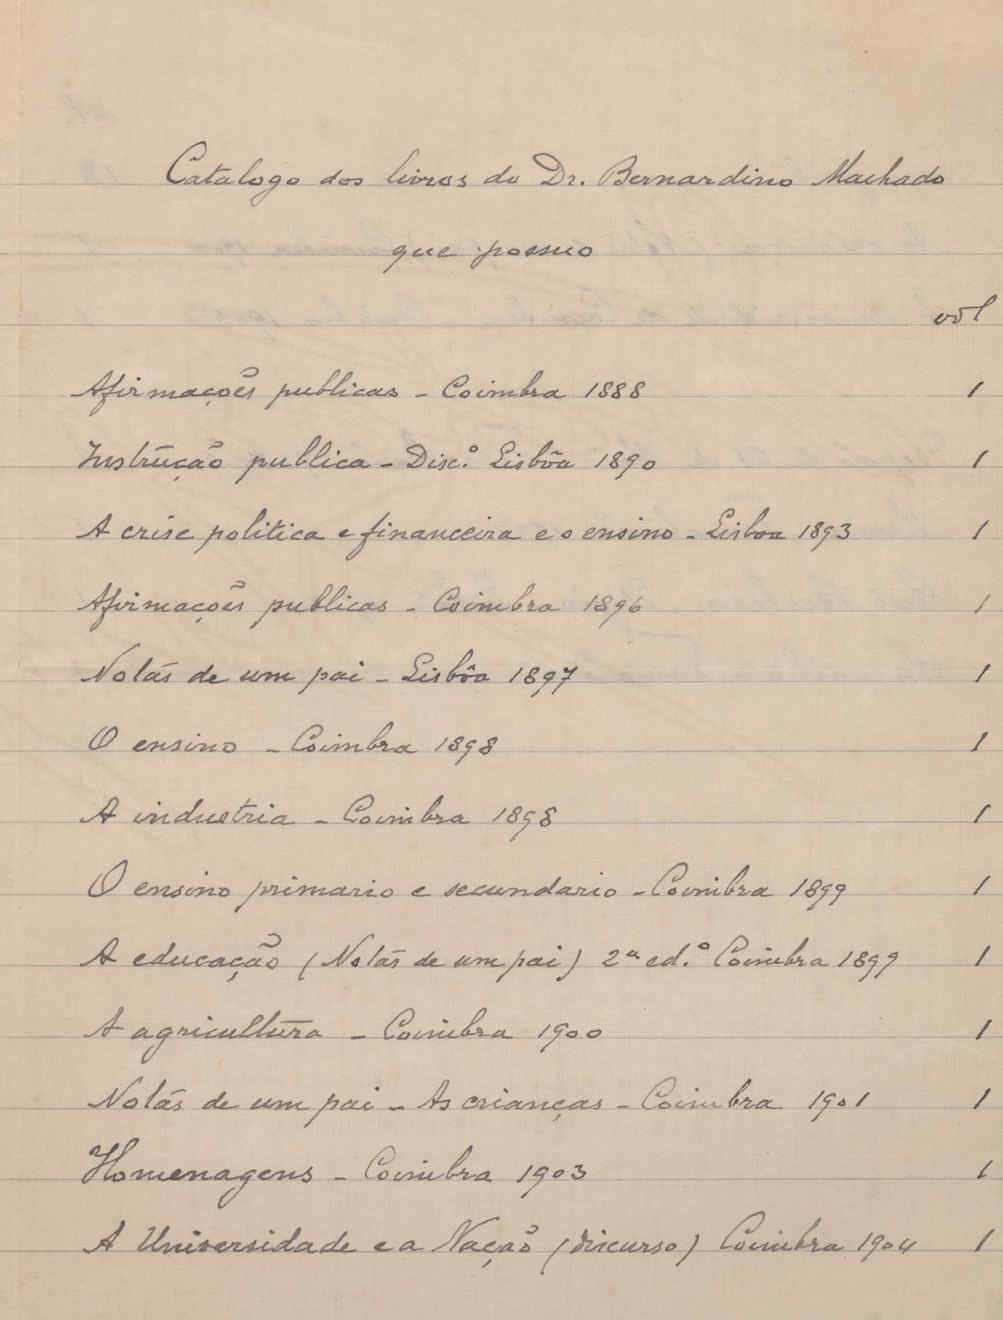 Catalogo dos livros do Dr. Bernardino Machado
que possuo
vol
Afirmações publicas - Coimbra 1888 1
Instrução publica - Disc.º Lisbôa 1890 1
A crise politica e financeira e o ensino - Lisboa 1893 1
Afirmações publicas - Coimbra 1896 1
Notas de um pai - Lisbôa 1897 1
O ensino - Coimbra 1898 1
A industria - Coimbra 1898 1
O ensino primario e secundario - Coimbra 1899 1
A educação (Notas de um pai) 2ª ed.º Coimbra 1899 1
A agricultura - Coimbra 1900 1
Notas de um pai - As crianças - Coimbra 1901 1
Homenagens - Coimbra 1903 1
A Universidade e a Nação (discurso) Coimbra 1904 1